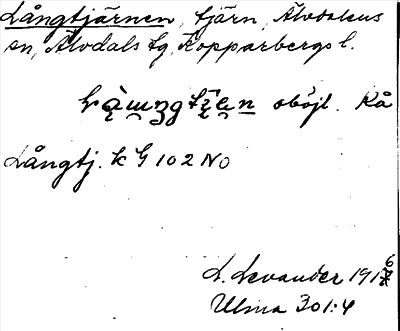 Långtjärnen, tjärn, Älvdalens
sn, Älvdals tg, Kopparbergs l.
oböjl. Rå
Långtj. k G 102 NO
L. Levander 1916
Ulma 301:4